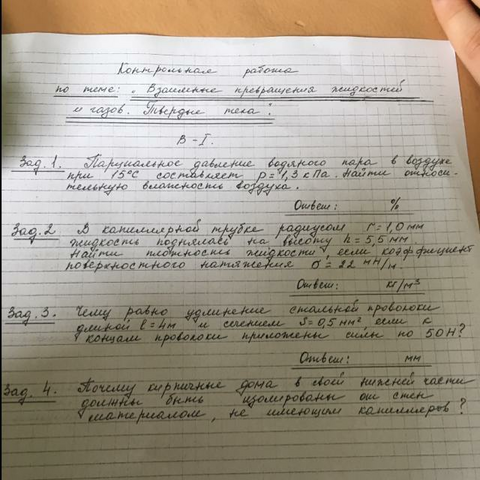 Контрольная работа
по теме: „Взаимные превращения жидкостей
и газов. Твердые тела".
В-I.
Зад. 1. Парциальное давление водяного пара в воздухе
при 15°С составляет p = 1,3 кПа. Найти относи-
тельную влажность воздуха.
Ответ: %
Зад. 2 В капиллярной трубке радиусом r = 1,0 мм
жидкость поднялась на высоту h = 5,5 мм
Найти плотность жидкости, если коэффициент
поверхностного натяжения σ = 22 мН/м.
Ответ: кг/м³
Зад. 3. Чему равно удлинение стальной проволоки
длиной l = 4м и сечением S = 0,5 мм², если к
концам проволоки приложены силы по 50Н?
Ответ: мм
Зад. 4. Почему кирпичные дома в свой нижней части
должны быть изолированы от стен
материалом, не имеющим капилляров?